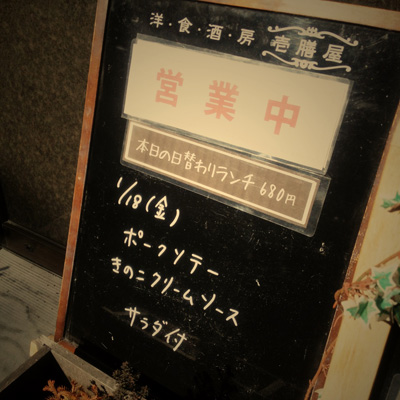 洋・食・酒・房 壱膳屋
営業中
本日の日替わりランチ 680円
1/18(金)
ポークソテー
きのこクリームソース
サラダ付